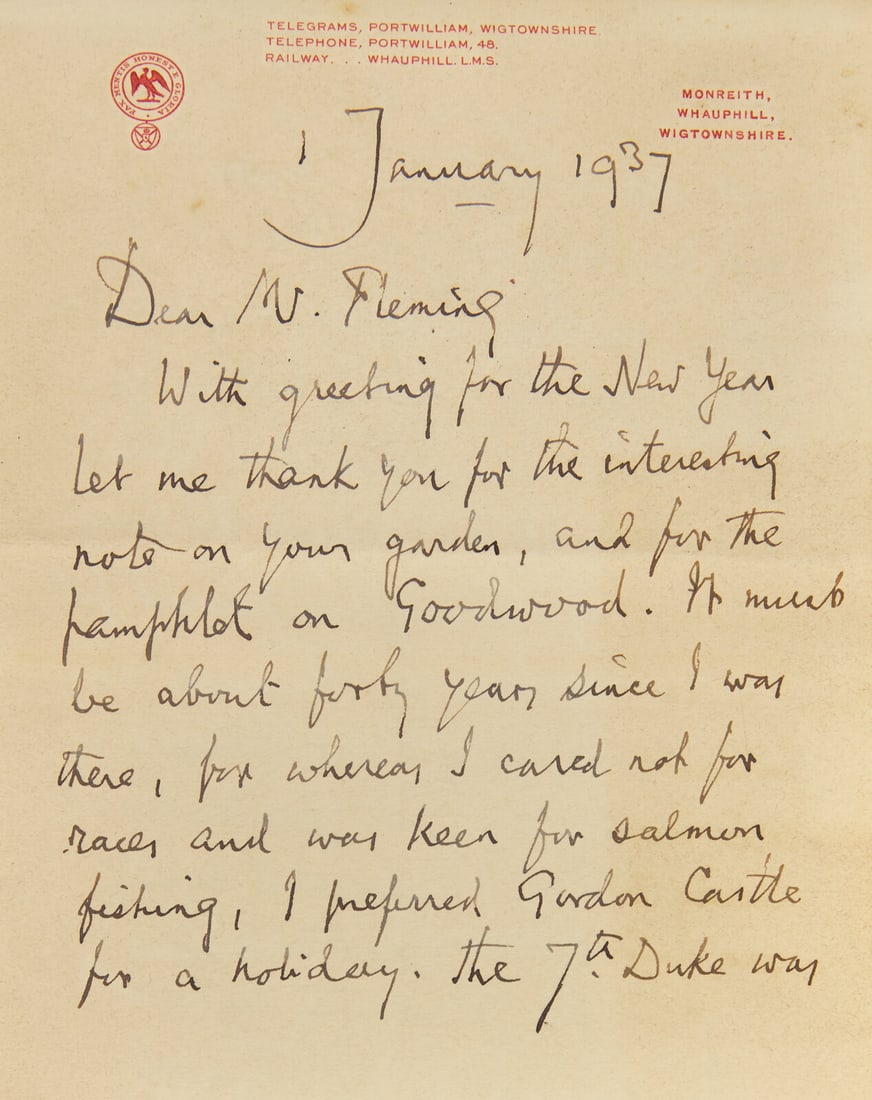 TELEGRAMS, PORTWILLIAM, WIGTOWNSHIRE.
TELEPHONE, PORTWILLIAM, 48.
RAILWAY. . . WHAUPHILL. L.M.S.
PAX MENTIS HONESTÆ GLORIA
MONREITH,
WHAUPHILL,
WIGTOWNSHIRE.
1 January 1937
Dear Mr. Fleming
With greeting for the New Year
let me thank you for the interesting
note on your garden, and for the
pamphlet on Goodwood. It must
be about forty years since I was
there, for whereas I cared not for
races and was keen for salmon
fishing, I preferred Gordon Castle
for a holiday. The 7th. Duke was